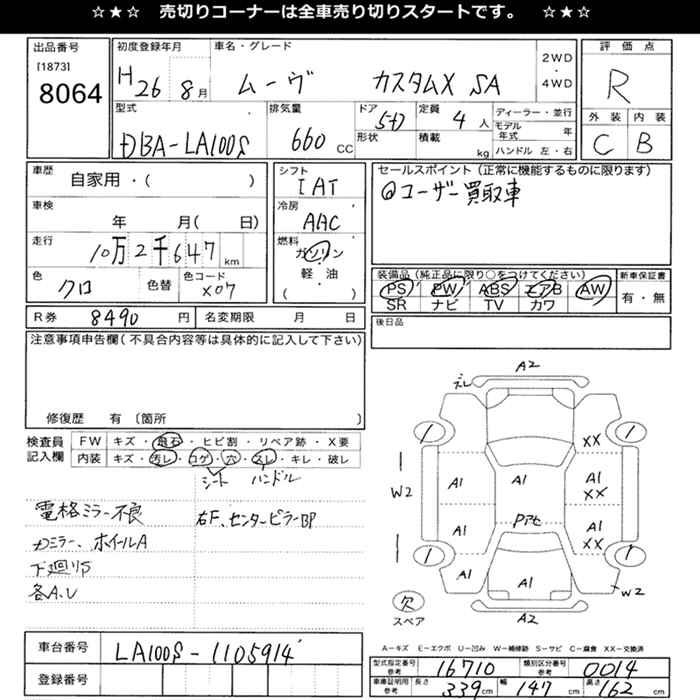 ☆★☆ 売切りコーナーは全車売り切りスタートです。 ☆★☆
出品番号 初度登録年月 車名・グレード 2WD・4WD 評価点
[1873] 8064 H26 8月 ムーヴ カスタムX SA R
型式 排気量 ドア 5D 定員 4人 ディーラー・並行 外装 内装
DBA-LA100S 660CC 形状 積載 kg モデル年式 年 C B
ハンドル 左・右
車歴 自家用・( ) シフト IAT セールスポイント(正常に機能するものに限ります)
車検 年 月( 日) 冷房 AAC @ユーザー買取車
走行 10万2千647km 燃料 ガソリン・軽油・( )
色 クロ 色替 色コード X07 装備品(純正品に限り○をつけてください) 新車保証書
PS PW ABS エアB AW 有・無
SR ナビ TV カワ
R券 8490円 名変期限 月 日 後日品
注意事項申告欄(不具合内容等は具体的に記入して下さい)
修復歴 有 〔箇所 〕
検査員記入欄 FW キズ・飛石・ヒビ割・リペア跡・X要
内装 キズ・汚レ・コゲ・穴・スレ・キレ・破レ
シート ハンドル
電格ミラー不良 右F、センターピラー凹
ミラー、ホイールA
下廻りS
各A.U
A2
ズレ
1 1
XX
A1 A1 A1 XX
W2 W2
Pアセ
A1 A1 XX
1 1
A1 A1
W2
欠 スペア A2
A-キズ E-エクボ U-凹み W-補修跡 S-サビ C-腐食 XX-交換済
車台番号 LA100S-1105914
登録番号
型式指定番号 参考 16710 類別区分番号 参考 0014
車庫証明用 参考 長さ 339cm 幅 147cm 高さ 162cm